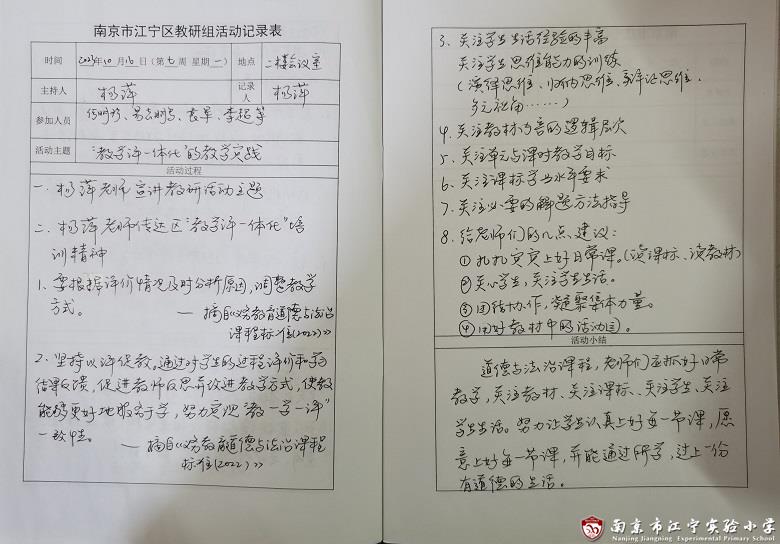 南京市江宁区教研组活动记录表
时间 2023年10月16日(第七周 星期一) 地点 二楼会议室
主持人 杨萍 记录人 杨萍
参加人员 李超等
活动主题 "教学评一体化"的教学实践
活动过程
一. 杨萍老师宣讲教研活动主题
二. 杨萍老师传达区"教学评一体化"培
训精神
1. 要根据评价情况及时分析原因,调整教学
方式。 —— 摘自《义务教育道德与法治
课程标准(2022)》
2. 坚持以评促教,通过对学生的过程评价和学习
结果反馈,促进教师反思并改进教学方式,使教
能够更好地服务于学,努力实现"教—学—评"
一致性。
—— 摘自《义务教育道德与法治课程
标准(2022)》
3. 关注学生生活经验的丰富
关注学生思维能力的训练
(演绎思维、归纳思维、辩证思维、
多元视角……)
4. 关注教材内容的逻辑层次
5. 关注单元与课时教学目标
6. 关注课标学业水平要求
7. 关注必要的解题方法指导
8. 给老师们的几点建议:
① 扎扎实实上好日常课。(读课标、读教材)
② 关心学生,关注学生生活。
③ 团结协作,凝聚集体力量。
④ 用好教材中的活动园。
活动小结
道德与法治课程,老师们应抓好日常
教学,关注教材、关注课标、关注学生、关注
学生生活。努力让学生认真上好每一节课,愿
意上好每一节课,并能通过所学,过上一份
有道德的生活。
南京市江宁实验小学
Nanjing Jiangning Experimental Primary School